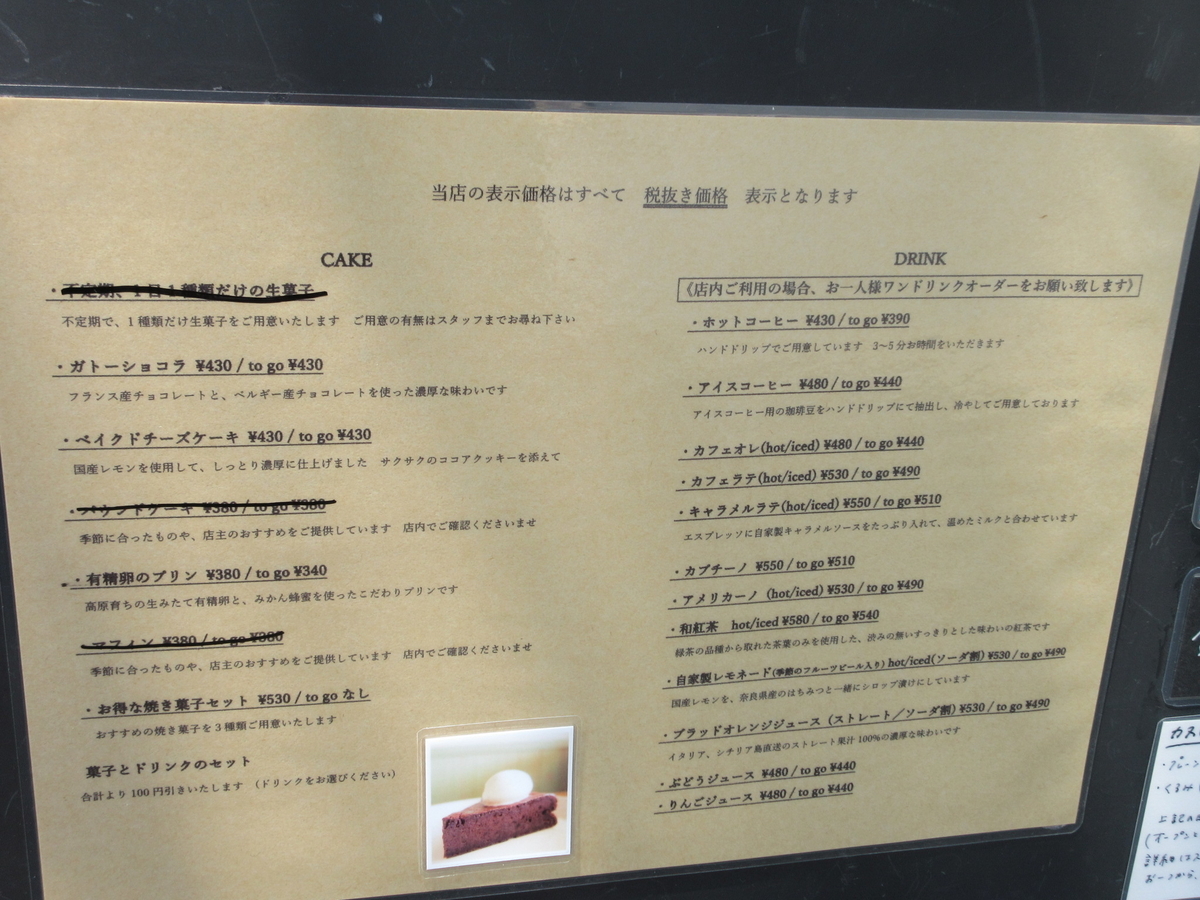 当店の表示価格はすべて 税抜き価格 表示となります
CAKE
・不定期、1日1種類だけの生菓子
不定期で、1種類だけ生菓子をご用意いたします ご用意の有無はスタッフまでお尋ね下さい
・ガトーショコラ ¥430 / to go ¥430
フランス産チョコレートと、ベルギー産チョコレートを使った濃厚な味わいです
・ベイクドチーズケーキ ¥430 / to go ¥430
国産レモンを使用して、しっとり濃厚に仕上げました サクサクのココアクッキーを添えて
・パウンドケーキ ¥380 / to go ¥380
季節に合ったものや、店主のおすすめをご提供しています 店内でご確認くださいませ
・有精卵のプリン ¥380 / to go ¥340
高原育ちの生みたて有精卵と、みかん蜂蜜を使ったこだわりプリンです
・マフィン ¥380 / to go ¥380
季節に合ったものや、店主のおすすめをご提供しています 店内でご確認くださいませ
・お得な焼き菓子セット ¥530 / to go なし
おすすめの焼き菓子を3種類ご用意いたします
菓子とドリンクのセット
合計より100円引きいたします (ドリンクをお選びください)
DRINK
《店内ご利用の場合、お一人様ワンドリンクオーダーをお願い致します》
・ホットコーヒー ¥430 / to go ¥390
ハンドドリップでご用意しています 3〜5分お時間をいただきます
・アイスコーヒー ¥480 / to go ¥440
アイスコーヒー用の珈琲豆をハンドドリップにて抽出し、冷やしてご用意しております
・カフェオレ(hot/iced) ¥480 / to go ¥440
・カフェラテ(hot/iced) ¥530 / to go ¥490
・キャラメルラテ(hot/iced) ¥550 / to go ¥510
エスプレッソに自家製キャラメルソースをたっぷり入れて、温めたミルクと合わせています
・カプチーノ ¥550 / to go ¥510
・アメリカーノ (hot/iced) ¥530 / to go ¥490
・和紅茶 hot/iced ¥580 / to go ¥540
緑茶の品種から取れた茶葉のみを使用した、渋みの無いすっきりとした味わいの紅茶です
・自家製レモネード(季節のフルーツピール入り) hot/iced(ソーダ割) ¥530 / to go ¥490
国産レモンを、奈良県産のはちみつと一緒にシロップ漬けにしています
・ブラッドオレンジジュース (ストレート/ソーダ割) ¥530 / to go ¥490
イタリア、シチリア島直送のストレート果汁100%の濃厚な味わいです
・ぶどうジュース ¥480 / to go ¥440
・りんごジュース ¥480 / to go ¥440
・プレーン
・くるみ
上記の
(オープン
詳細は